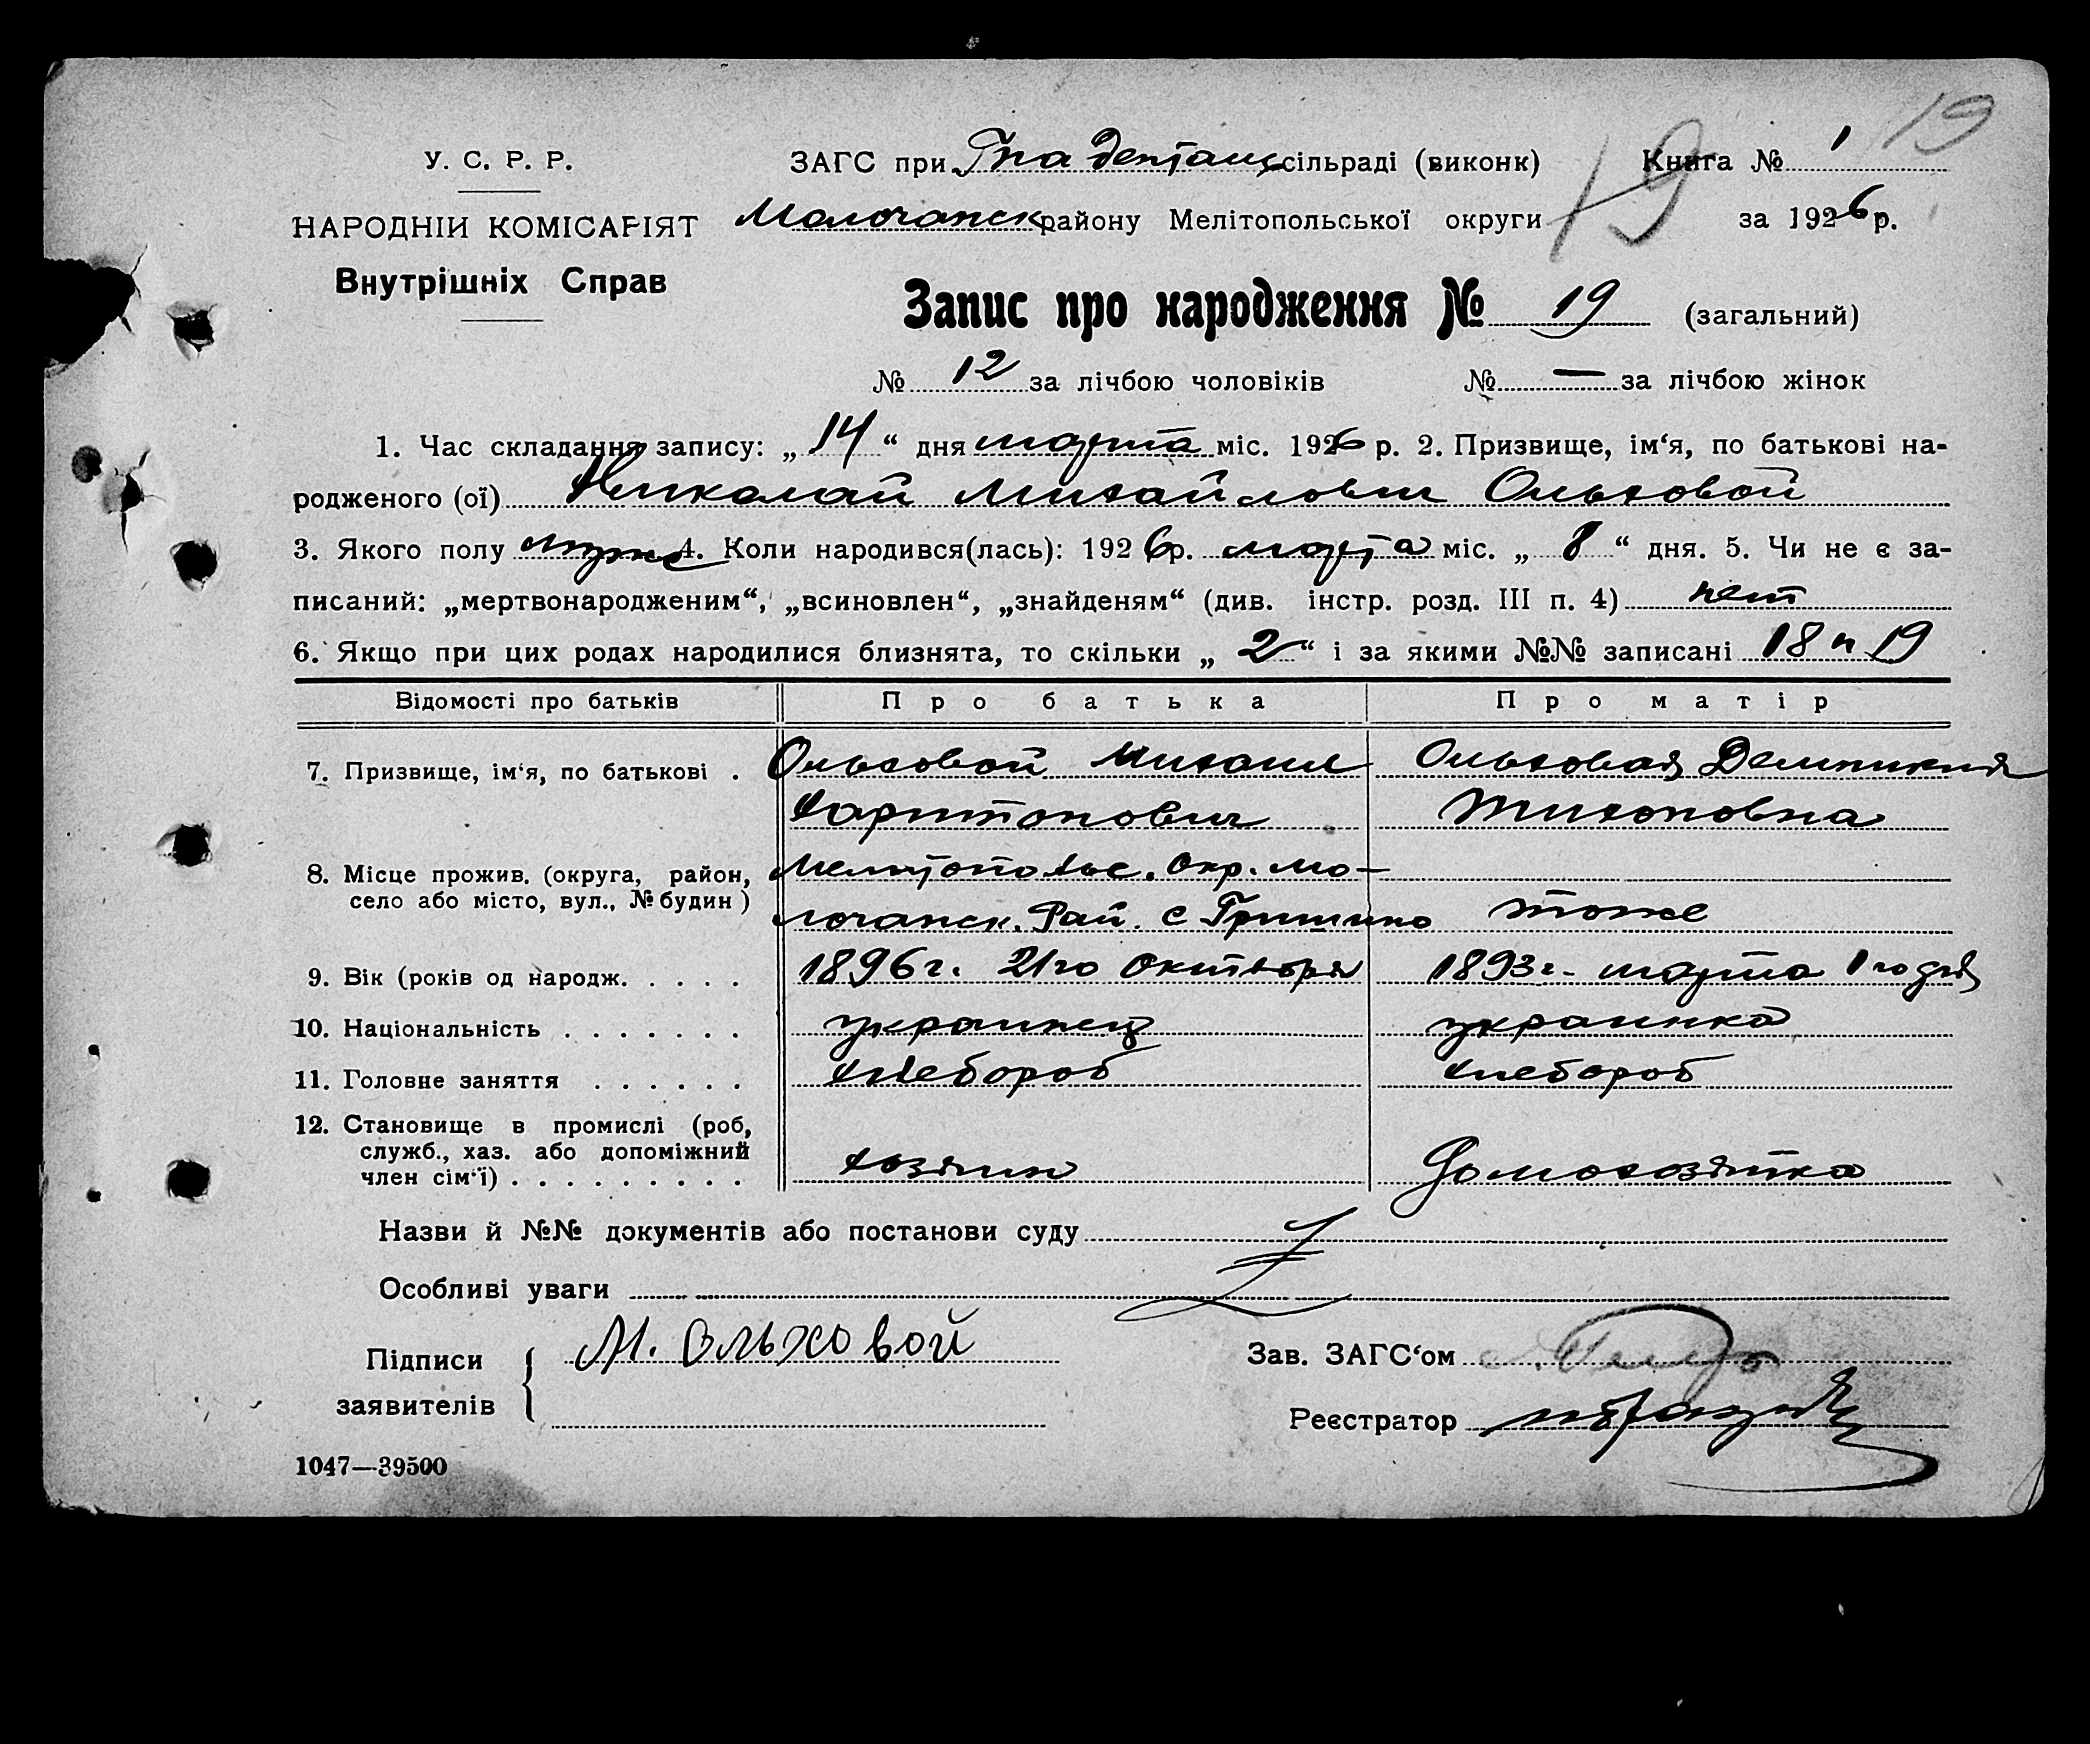 19
У. С. Р. Р.
ЗАГС при Гнаденталь сільраді (виконк)
Книга № 1
19
НАРОДНІЙ КОМІСАРІЯТ
Молочанск району Мелітопольської округи
за 1926 р.
Внутрішніх Справ
Запис про народження № 19 (загальний)
№ 12 за лічбою чоловіків № — за лічбою жінок
1. Час складання запису: „ 14 “ дня марта міс. 1926 р. 2. Призвище, ім‘я, по батькові на-
родженого (ої) Николай Михайлович Ольховой
3. Якого полу мужс 4. Коли народився(лась): 192 6 р. марта міс. „ 8 “ дня. 5. Чи не є за-
писаний: „мертвонародженим“, „всиновлен“, „знайденям“ (див. інстр. розд. III п. 4) нет
6. Якщо при цих родах народилися близнята, то скільки „ 2 “ і за якими №№ записані 18 и 19
Відомості про батьків Про батька Про матір
7. Призвище, ім‘я, по батькові . Ольховой Михаил Ольховая
Харитонович Тихоновна
8. Місце прожив. (округа, район, Мелитопольс. Окр. Мо-
село або місто, вул., № будин ) лочанск. Рай. с Гришино тоже
9. Вік (років од народж. . . . . 1896 г. 21го Октября 1893 г. марта 1го дня
10. Національність . . . . . . . украинец украинка
11. Головне заняття . . . . . . хлебороб хлебороб
12. Становище в промислі (роб,
служб., хаз. або допоміжний
член сім‘ї) . . . . . . . . . хозяин домохозяйка
Назви й №№ документів або постанови суду
Особливі уваги
Підписи М. Ольховой
Зав. ЗАГС‘ом
заявителів
Реєстратор
1047—39500